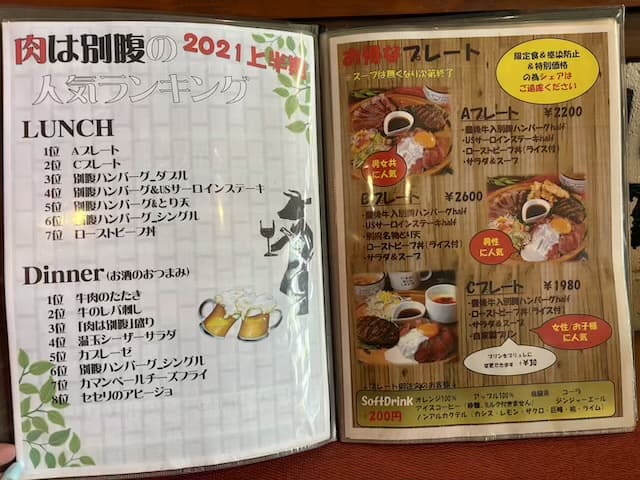 肉は別腹の 2021上半期
人気ランキング
LUNCH
1位 Aプレート
2位 Cプレート
3位 別腹ハンバーグ_ダブル
4位 別腹ハンバーグ&USサーロインステーキ
5位 別腹ハンバーグ&とり天
6位 別腹ハンバーグ_シングル
7位 ローストビーフ丼
Dinner(お酒のおつまみ)
1位 牛肉のたたき
2位 牛のレバ刺し
3位 「肉は別腹」盛り
4位 温玉シーザーサラダ
5位 カプレーゼ
6位 別腹ハンバーグ_シングル
7位 カマンベールチーズフライ
8位 セセリのアヒージョ
お得なプレート
※スープは無くなり次第終了
限定食&感染防止
&特別価格
の為シェアは
ご遠慮ください
Aプレート ¥2200
・豊後牛入別腹ハンバーグhalf
・USサーロインステーキhalf
・ローストビーフ丼(ライス付)
・サラダ&スープ
男女共
に人気
Bプレート ¥2600
・豊後牛入別腹ハンバーグhalf
・USサーロインステーキhalf
・別府名物とり天
・ローストビーフ丼(ライス付)
・サラダ&スープ
男性
に人気
Cプレート ¥1980
・豊後牛入別腹ハンバーグhalf
・ローストビーフ丼(ライス付)
・サラダ&スープ
・自家製プリン
女性/お子様
に人気
プリンをブリュレに
変更できます +¥30
・プレート御注文のお客様・
SoftDrink
200円
オレンジ100% アップル100% 烏龍茶 コーラ
アイスコーヒー(砂糖、ミルク付きません) ジンジャーエール
ノンアルカクテル(カシス・レモン・ザクロ・巨峰・桃・ライム)